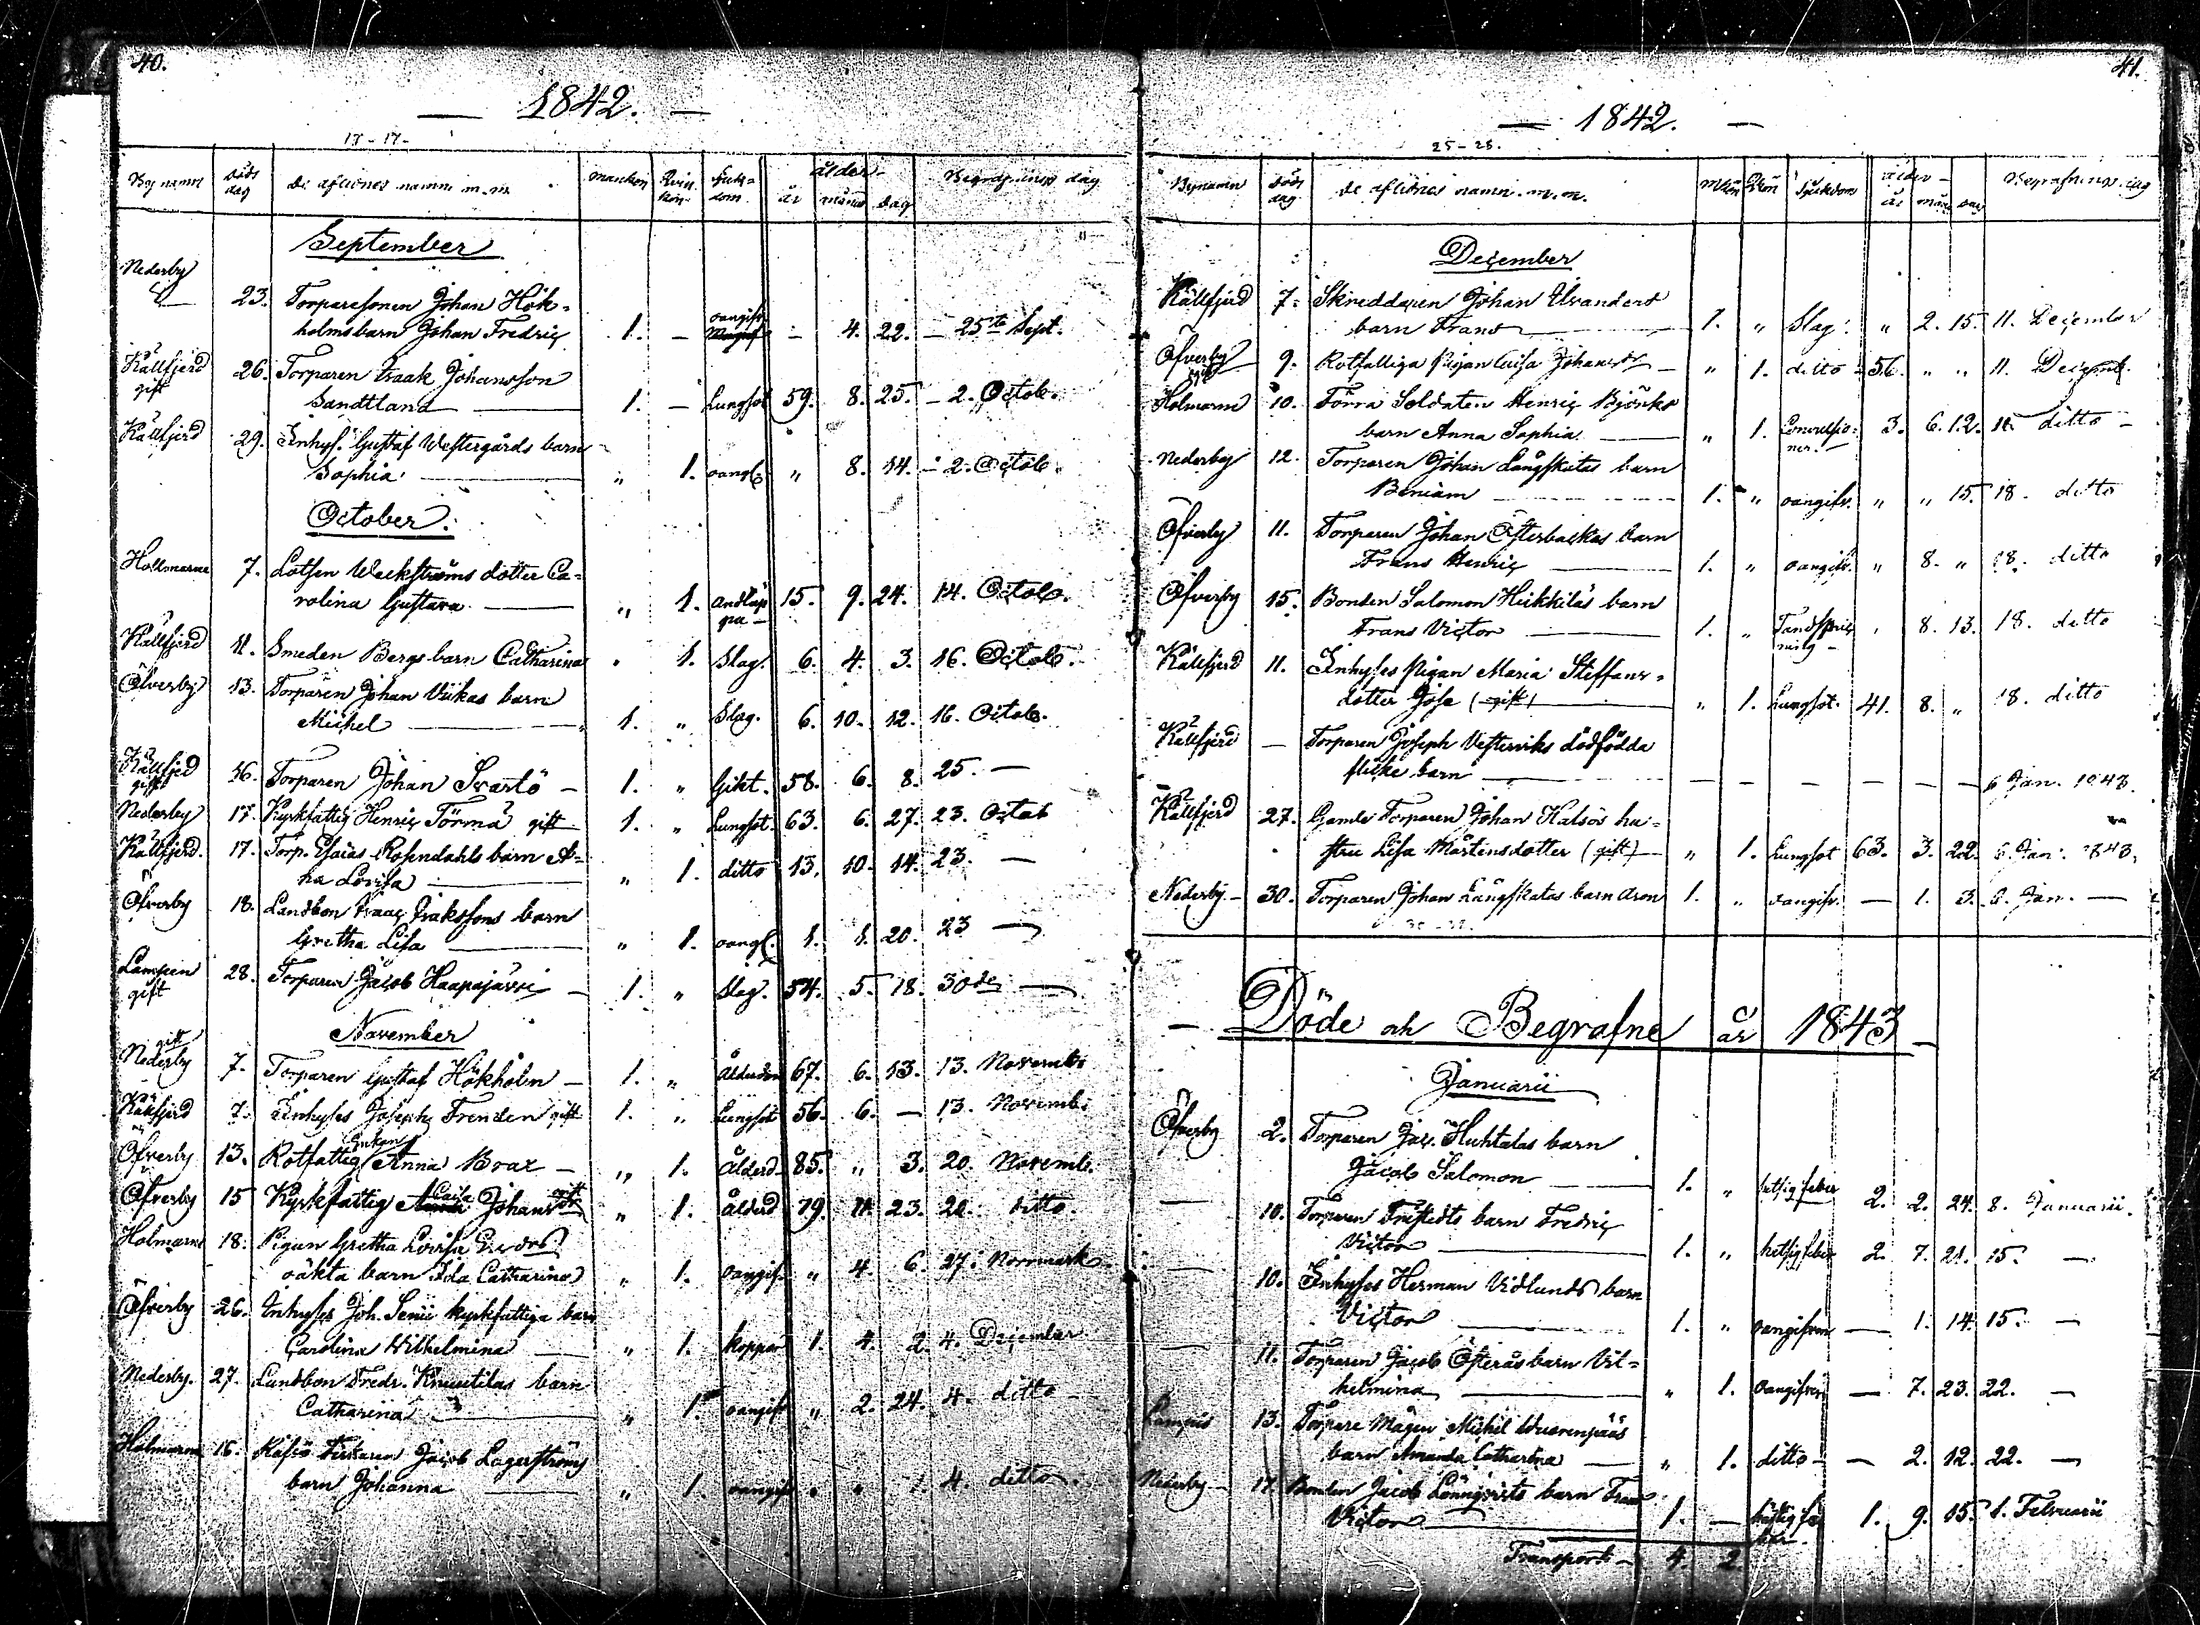 40.
— 1842. —
17-17-
By namn Döds dag De aflidnes namn m.m. mankön Qvin kön Sjukdom ålder år månad dag Begrafnings dag
September
Nederby 23. Torparesonen Johan Hök-
holms barn Johan Fredric 1. — oangifv. — 4. 22. — 25te Sept.
Kållfjerd gift 26. Torparen Isaak Johansson
Sandstland 1. — Lungsot 59. 8. 25. — 2. Octob.
Kållfjerd 29. Inhys. Gustaf Westergårds barn
Sophia „ 1. oangf. „ 8. 14. — 2. Octob.
October.
Holmarne 7. Lotsen Weckströms dotter Ca-
rolina Gustava „ 1. Andtäp pa 15. 9. 24. 14. Octob.
Kållfjerd 11. Smeden Bergs barn Catharina „ 1. Slag. 6. 4. 3. 16. Octob.
Öfverby 13. Torparen Johan Viikas barn
Michel 1. „ Slag. 6. 10. 12. 16. Octob.
Kållfjerd gift 16. Torparen Johan Svartö — 1. „ Gikt. 58. 6. 8. 25. —
Nederby 17. Kyrkfattig Henric Törmä gift 1. „ Lungsot. 63. 6. 27. 23. Octob
Kållfjerd. 17. Torp. Esaias Rosendahls barn
Lovisa „ 1. ditto 13. 10. 14. 23. —
Öfverby 18. Landbon Isaac Isakssons barn
Gretha Lisa „ 1. oangf. 1. 1. 20. 23 —
Lampien gift 28. Torparen Jacob Haapajärvi — 1. „ Slag. 54. 5. 18. 30de —
November
gift
Nederby 7. Torparen Gustaf Hökholm — 1. „ Ålderdom 67. 6. 13. 13. Novemb.
Kållfjerd 7. Inhyses Joseph Frenden gift 1. „ Lungsot 56. 6. — 13. Novemb.
Öfverby 13. Rotfattig Enkan Anna Brax — „ 1. Ålderd. 85. „ 3. 20. Novemb.
Öfverby 15 Kyrkfattig Caisa Johansdr „ 1. Ålderd 79. 11. 23. 20. ditto.
Holmarne 18. Pigan Gretha Lovisa
oäkta barn Ida Catharina „ 1. oangif. „ 4. 6. 27. Norrmark
Öfverby 26. Inhyses Joh. Senii kyrkfattiga barn
Carolina Wilhelmina „ 1. koppor 1. 4. 2. 4. December
Nederby. 27. Landbon Fredr. Knuutilas barn
Catharina „ 1. oangif „ 2. 24. 4. ditto —
Holmarne 16. Fiskaren Jacob Lagerströms
barn Johanna „ 1. oangif „ „ 1. 4. ditto.
41.
— 1842. —
25-28.
Bynamn Döds dag De aflidnes namn. m.m. M Kön Q Kön Sjukdom ålder år månad dag Begrafnings dag
December
Kållfjerd 7. Skreddaren Johan Elvanders
barn Frans 1. „ Slag. „ 2. 15. 11. December
Öfverby gift 9. Rotfattiga Pigan Caisa Johansdr — „ 1. ditto 56. „ „ 11. Decemb.
Holmarne 10. Förra Soldaten Henric Björks
barn Anna Sophia „ 1. Convulsio-
ner. 3. 6. 12. 11. ditto —
Nederby 12. Torparen Johan Långskatas barn
Beniam 1. „ oangifv. „ „ 15. 18. ditto
Öfverby 11. Torparen Johan Österbackas barn
Frans Henric 1. „ oangifv. „ 8. „ 18. ditto
Öfverby 15. Bonden Salomon Heikkiläs barn
Frans Victor 1. „ Tandspric
ning — „ 8. 13. 18. ditto
Kållfjerd 11. Inhyses Pigan Maria Steffans-
dotter Jofs (gift) „ 1. Lungsot. 41. 8. „ 18. ditto
Kållfjerd — Torparen Joseph Vesterviks dödfödda
flicke barn — — — — — — 6 Jan. 1843.
Kållfjerd 27. Gamle Torparen Johan Halsös hu-
stru Lisa Mårtensdotter (gift) „ 1. Lungsot 63. 3. 22. 6. Jan. 1843.
Nederby — 30. Torparen Johan Långskatas barn Aron 1. „ oangifv. — 1. 3. 6. Jan. —
— Döde och Begrafne år 1843 —
Januarii
Öfverby 2. Torparen Jac. Huhtalas barn
Jacob Salomon 1. „ hetsig feber 2. 2. 24. 8. Januarii.
— 10. Torparen Fristedts barn Fredric
Victor 1. „ hetsig feber 2. 7. 21. 15. —
— 10. Inhyses Herman Vidlunds barn
Victor 1. „ oangifven — 1. 14. 15. —
— 11. Torparen Jacob Österås barn Vil-
helmina „ 1. oangifven — 7. 23. 22. —
Lampis 13. Torpare Mågen Michel Wuorenpääs
barn Amanda Catharina „ 1. ditto — — 2. 12. 22. —
Nederby — 17. Bonden Jacob Lönnqvists barn Frans
Victor 1. — hetsig fe
ber. 1. 9. 15. 1. Februarii
Transport — 4. 2